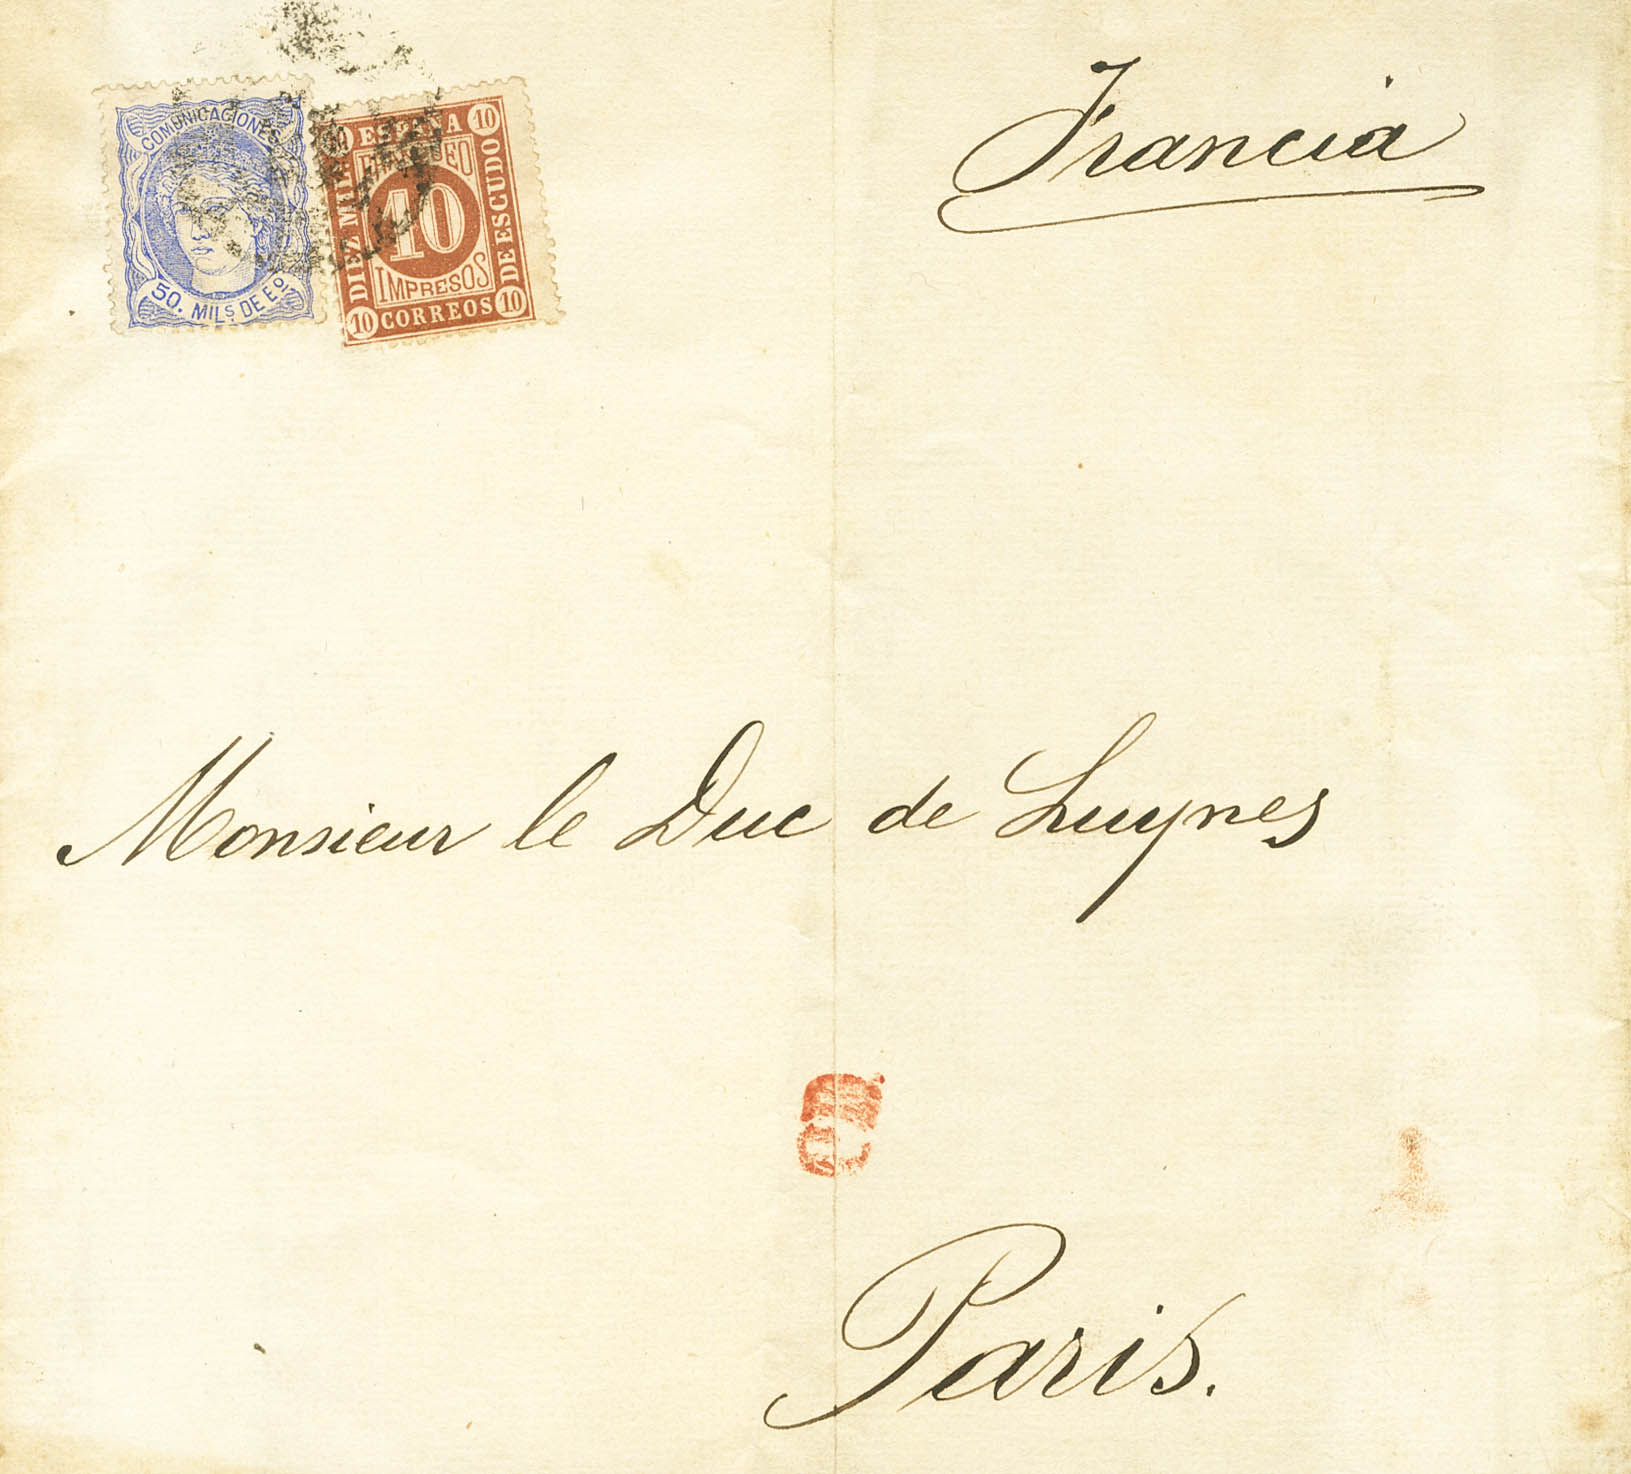 Francia
COMUNICACIONES
50. MILS. DE Eº
ESPAÑA 10
DIEZ MIL
DE ESCUDO
10
IMPRESOS
10 CORREOS 10
Monsieur le Duc de Luynes
PD
Paris.